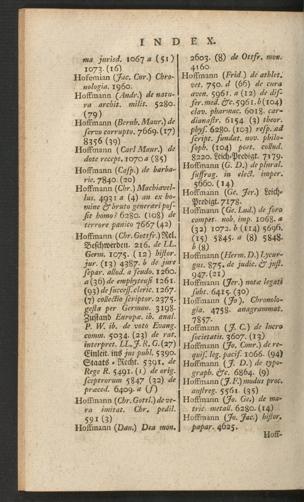 INDEX.
ma jurisd. 1067 a (51)
1073. (16)
Hofeman (Jac. Car.) Chro-
nologia. 1960.
Hoffmann (Andr.) de natu-
ra archit. milit. 5280.
(79)
Hoffmann (Bernh. Maur.) de
servo corrupto. 7669. (17)
8356 (39)
Hoffmann (Carl Maur.) de
dote recept. 1070 a (85)
Hoffmann (Casp.) de barba-
rie. 7840. (20)
Hoffmann (Chr.) Machiavel-
lus. 4931 a (4) an ex ho-
mine & bruto generari pos-
sit homo? 6280. (108) de
terrore panico 7667 (42)
Hoffmann (Chr. Gottfr.) Rel.
Beschwerden. 216. de LL.
Germ. 1075. (12) histor.
jur. (13) 4387. b de jure
separ. allod. a feudo. 1260.
a (36) de emphyteusi 1261.
(93) de success. cleric. 1267.
(7) collectio scriptor. 2375.
gesta per Germam. 3198.
Zustand Europæ. ib. anul.
P. W. ib. de voto Evang.
comm. 5034. (23) de rat.
interpret. LL. J. R. G. (27)
Einleit. ins jus publ. 5390.
Staats-Recht. 5391. de
Rege R. 5491. (1) de orig.
sceptrorum 5847 (32) de
præced. 6409. a (f)
Hoffmann (Chr. Gottl.) de ve-
ra imitat. Chr. pedil.
591 (3)
Hoffmann (Dan.) Dea mon.
2603. (8) de Ottfr. mon.
4160
Hoffmann (Frid.) de athlet.
vet. 750. d (66) de cura
aven. 5961. a (12) de dif-
fer. med. &c. 5961. b (104)
clav. pharmac. 6018. car-
dianastr. 6154 (3) theor.
phys. 6280. (103) resp. ad
script. fundat. nov. philo-
soph. (104) poet. collud.
8220. Leich-Predigt. 7179.
Hoffmann (G. D.) de plural.
suffrag. in elect. imper.
5660. (14)
Hoffmann (Ge. Jer.) Leich-
Predigt. 7178.
Hoffmann (Ge. Lud.) de foro
compet. nob. imp. 1068. a
(32) 1072. b (114) 5696.
(15) 5845. a (8) 5848.
b (8)
Hoffmann (Herm. D.) Lycur-
gus. 875. de judic. & just.
947. (21)
Hoffmann (Jer.) notæ legati
subt. 6415. (30)
Hoffmann (Jo.) Chronolo-
gia. 4758. anagrammat.
7857.
Hoffmann (J. C.) de lucro
societatis. 3607. (13)
Hoffmann (Jo. Conr.) de re-
quis. leg. pacif. 1066. (94)
Hoffmann (J. D.) de typo-
graph. &c. 6864. (9)
Hoffmann (J. F.) modus proc.
austreg. 5561. (35)
Hoffmann (Jo. Ge.) de ma-
tric. metall. 6280. (14)
Hoffmann (Jo. Jac.) histor.
papar. 4625.
Hoff-